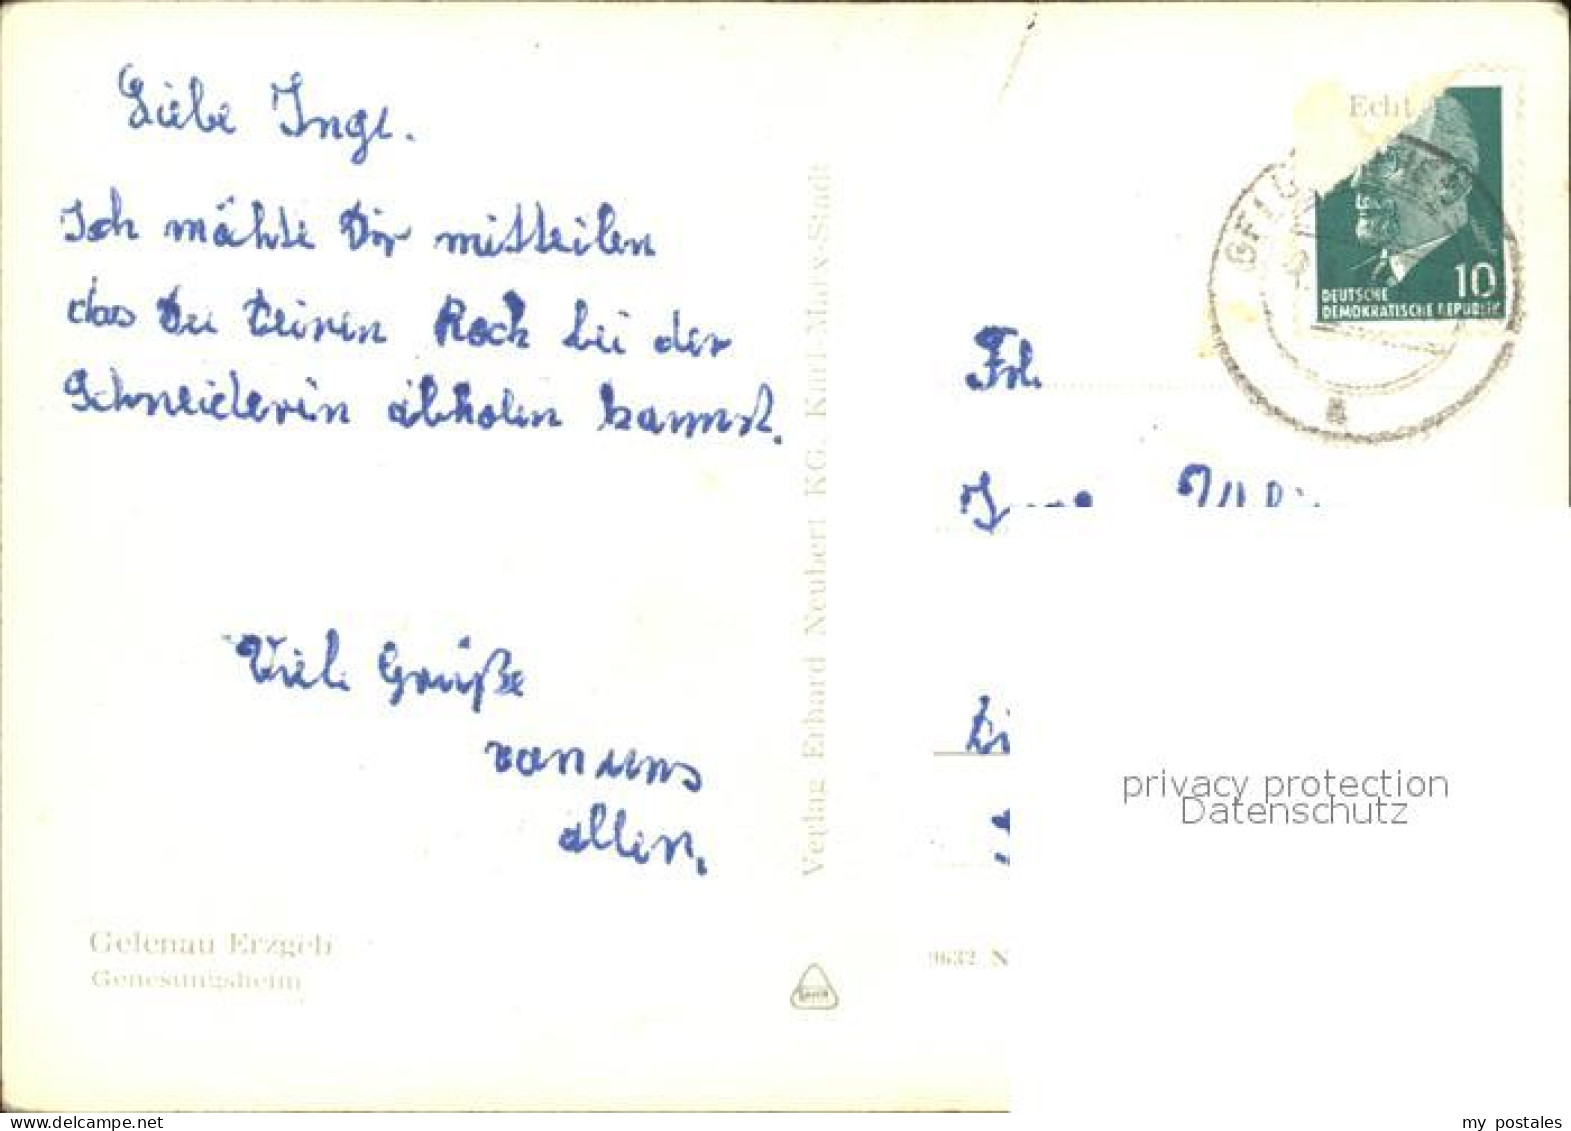 Liebe Inge.
Ich mähte Dir mitteilen
das Du Deinen Rock bei der
Schneiderin abholen kannst.
Viele Grüße
von uns
allen.
Gelenau Erzgeb
Genesungsheim
Verlag Erhard Neubert KG. Karl-Marx-Stadt
Echt
10
DEUTSCHE
DEMOKRATISCHE REPUBLIK
Frl.
9632 N
privacy protection
Datenschutz
my postales